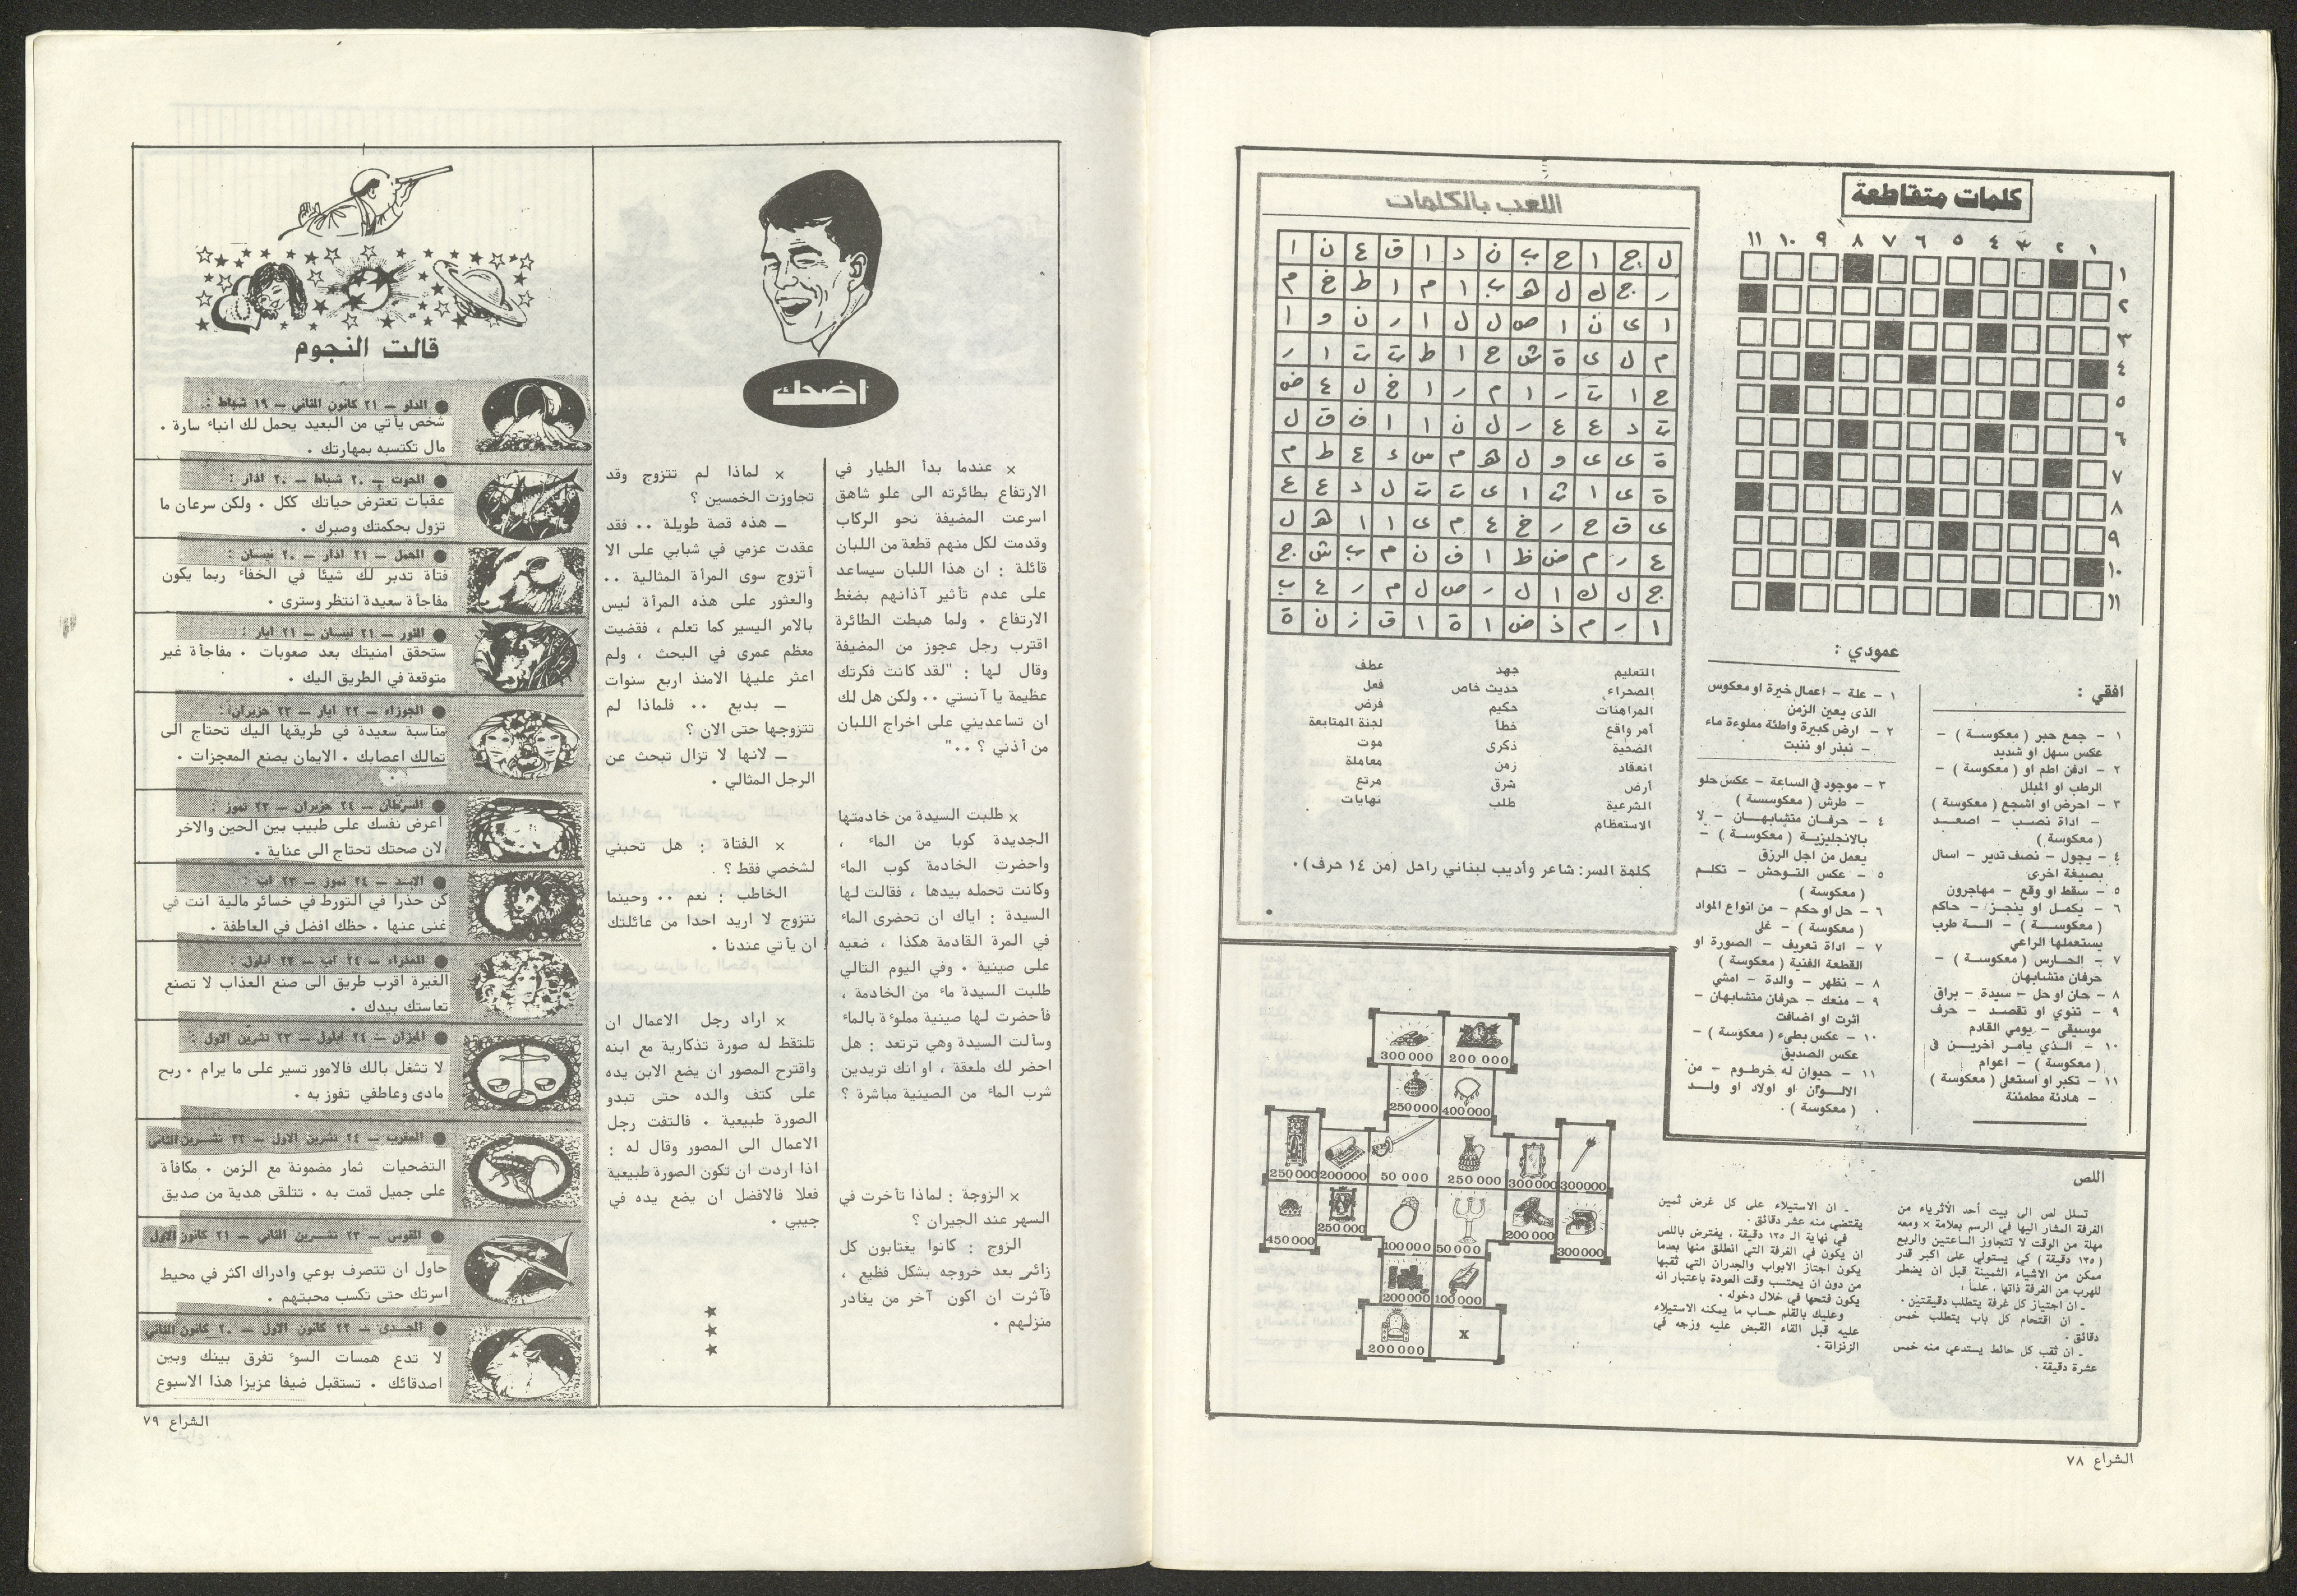 كلمات متقاطعة
١١ ١٠ ٩ ٨ ٧ ٦ ٥ ٤ ٣ ٢ ١
١
٢
٣
٤
٥
٦
٧
٨
٩
١٠
١١
افقي :
١ - جمع حبر ( معكوسة ) -
عكس سهل او شديد
٢ - ادفن اطم او ( معكوسة ) -
الرطب او المبلل
٣ - احرض او اشجع ( معكوسة )
- اداة نصب - اصعد
( معكوسة )
٤ - يجول - نصف تدير - اسال
بصيغة اخرى
٥ - سقط او وقع - مهاجرون
٦ - يكمل او ينجز - حاكم
( معكوسة ) - الة طرب
يستعملها الراعي
٧ - الحارس ( معكوسة ) -
حرفان متشابهان
٨ - حان او حل - سيدة - براق
٩ - تنوي او تقصد - حرف
موسيقي - يومي القادم
١٠ - الذي يامر اخرين في
( معكوسة ) - اعوام
١١ - تكبر او استعلى ( معكوسة )
- هادئة مطمئنة
عمودي :
١ - علة - اعمال خيرة او معكوس
الذى يعين الزمن
٢ - ارض كبيرة واطئة مملوءة ماء
- نبذر او ننبت
٣ - موجود في الساعة - عكس حلو
- طرش ( معكوسسة )
٤ - حرفان متشابهان - لا
بالانجليزية ( معكوسة ) -
يعمل من اجل الرزق
٥ - عكس التوحش - تكلم
( معكوسة )
٦ - حل او حكم - من انواع المواد
( معكوسة ) - غلى
٧ - اداة تعريف - الصورة او
القطعة الفنية ( معكوسة )
٨ - نظهر - والدة - امشي
٩ - منعك - حرفان متشابهان -
اثرت او اضافت
١٠ - عكس بطيء ( معكوسة ) -
عكس الصديق
١١ - حيوان له خرطوم - من
الالوان او اولاد او ولد
( معكوسة ) .
اللعب بالكلمات
ل ج ا ح ب ن د ا ق ع ن ا
ر ج ك ل ه ب ا م ا ط خ م
ا ى ن ا ص ل ل ا ر ن و ا
م ل ى ة ش ح ا ط ت ت ا ر
ح ا ت ر ا م ر ا خ ل ع ض
ت د ع ع ر ل ن ا ا ف ق ل
ة ى ى و ل ه م س ء ع ط م
ة ى ا ث ا ى ت ت ل د ع ع
ى ق ح ر خ ع م ى ا ا ه ل
ع ر م ض ظ ا ف ن م ب ش ج
ج ل ك ا ل ر ص ل م ر ع ب
ا ر م ذ ض ا ة ا ق ز ن ة
التعليم
الصحراء
المراهنات
أمر واقع
الضحية
انعقاد
أرض
الشرعية
الاستعظام
جهد
حديث خاص
حكيم
خطأ
ذكرى
زمن
شرق
طلب
عطف
فعل
فرض
لجنة المتابعة
موت
معاملة
مرتع
نهايات
كلمة السر: شاعر وأديب لبناني راحل (من ١٤ حرف) .
اللص
تسلل لص الى بيت أحد الأثرياء من
الغرفة المشار اليها في الرسم بعلامة × ومعه
مهلة من الوقت لا تتجاوز الساعتين والربع
( ١٣٥ دقيقة ) كي يستولي على اكبر قدر
ممكن من الاشياء الثمينة قبل ان يضطر
للهرب من الغرفة ذاتها . علماً :
ـ ان اجتياز كل غرفة يتطلب دقيقتين .
ـ ان اقتحام كل باب يتطلب خمس
دقائق .
ـ ان ثقب كل حائط يستدعي منه خمس
عشرة دقيقة .
ـ ان الاستيلاء على كل غرض ثمين
يقتضي منه عشر دقائق .
في نهاية الـ ١٣٥ دقيقة ، يفترض باللص
ان يكون في الغرفة التي انطلق منها بعدما
يكون اجتاز الابواب والجدران التي ثقبها
من دون ان يحتسب وقت العودة باعتبار انه
يكون فتحها في خلال دخوله .
وعليك بالقلم حساب ما يمكنه الاستيلاء
عليه قبل القاء القبض عليه وزجه في
الزنزانة .
300000 200 000
250000 400000
250000 200000 50 000 250 000 300000 300000
450000 250 000 100000 50000 200000 300000
200000 100000
200000 x
الشراع ٧٨
اضحك
× عندما بدأ الطيار في
الارتفاع بطائرته الى علو شاهق
اسرعت المضيفة نحو الركاب
وقدمت لكل منهم قطعة من اللبان
قائلة : ان هذا اللبان سيساعد
على عدم تأثير آذانهم بضغط
الارتفاع . ولما هبطت الطائرة
اقترب رجل عجوز من المضيفة
وقال لها : "لقد كانت فكرتك
عظيمة يا آنستي .. ولكن هل لك
ان تساعديني على اخراج اللبان
من أذني ؟ .."
× طلبت السيدة من خادمتها
الجديدة كوبا من الماء ،
واحضرت الخادمة كوب الماء
وكانت تحمله بيدها ، فقالت لها
السيدة : اياك ان تحضرى الماء
في المرة القادمة هكذا ، ضعيه
على صينية . وفي اليوم التالي
طلبت السيدة ماء من الخادمة ،
فأحضرت لها صينية مملوءة بالماء
وسألت السيدة وهي ترتعد : هل
احضر لك ملعقة ، او انك تريدين
شرب الماء من الصينية مباشرة ؟
× الزوجة : لماذا تأخرت في
السهر عند الجيران ؟
الزوج : كانوا يغتابون كل
زائر بعد خروجه بشكل فظيع ،
فآثرت ان اكون آخر من يغادر
منزلهم .
× لماذا لم تتزوج وقد
تجاوزت الخمسين ؟
ـ هذه قصة طويلة .. فقد
عقدت عزمي في شبابي على الا
أتزوج سوى المرأة المثالية ..
والعثور على هذه المرأة ليس
بالامر اليسير كما تعلم ، فقضيت
معظم عمرى في البحث ، ولم
اعثر عليها الامنذ اربع سنوات
ـ بديع .. فلماذا لم
تتزوجها حتى الان ؟
ـ لانها لا تزال تبحث عن
الرجل المثالي .
× الفتاة : هل تحبني
لشخصي فقط ؟
الخاطب : نعم .. وحينما
نتزوج لا اريد احدا من عائلتك
ان يأتي عندنا .
× اراد رجل الاعمال ان
تلتقط له صورة تذكارية مع ابنه
واقترح المصور ان يضع الابن يده
على كتف والده حتى تبدو
الصورة طبيعية . فالتفت رجل
الاعمال الى المصور وقال له :
اذا اردت ان تكون الصورة طبيعية
فعلا فالافضل ان يضع يده في
جيبي .
قالت النجوم
● الدلو - ٢١ كانون الثاني - ١٩ شباط :
شخص يأتي من البعيد يحمل لك انباء سارة .
مال تكتسبه بمهارتك .
● الحوت - ٢٠ شباط - ٢٠ اذار :
عقبات تعترض حياتك ككل . ولكن سرعان ما
تزول بحكمتك وصبرك .
● الحمل - ٢١ اذار - ٢٠ نيسان :
فتاة تدبر لك شيئا في الخفاء ربما يكون
مفاجأة سعيدة انتظر وسترى .
● الثور - ٢١ نيسان - ٢١ ايار :
ستحقق امنيتك بعد صعوبات . مفاجأة غير
متوقعة في الطريق اليك .
● الجوزاء - ٢٢ ايار - ٢٣ حزيران :
مناسبة سعيدة في طريقها اليك تحتاج الى
تمالك اعصابك . الايمان يصنع المعجزات .
● السرطان - ٢٤ حزيران - ٢٣ تموز :
أعرض نفسك على طبيب بين الحين والاخر
لان صحتك تحتاج الى عناية .
● الاسد - ٢٤ تموز - ٢٣ اب :
كن حذرا في التورط في خسائر مالية انت في
غنى عنها . حظك افضل في العاطفة .
● العذراء - ٢٤ اب - ٢٣ ايلول :
الغيرة اقرب طريق الى صنع العذاب لا تصنع
تعاستك بيدك .
● الميزان - ٢٤ ايلول - ٢٣ تشرين الاول :
لا تشغل بالك فالامور تسير على ما يرام . ربح
مادى وعاطفي تفوز به .
● العقرب - ٢٤ تشرين الاول - ٢٢ تشرين الثاني
التضحيات ثمار مضمونة مع الزمن . مكافأة
على جميل قمت به . تتلقى هدية من صديق
● القوس - ٢٣ تشرين الثاني - ٢١ كانون الاول
حاول ان تتصرف بوعي وادراك اكثر في محيط
اسرتك حتى تكسب محبتهم .
● الجدى - ٢٢ كانون الاول - ٢٠ كانون الثاني
لا تدع همسات السوء تفرق بينك وبين
اصدقائك . تستقبل ضيفا عزيزا هذا الاسبوع
الشراع ٧٩